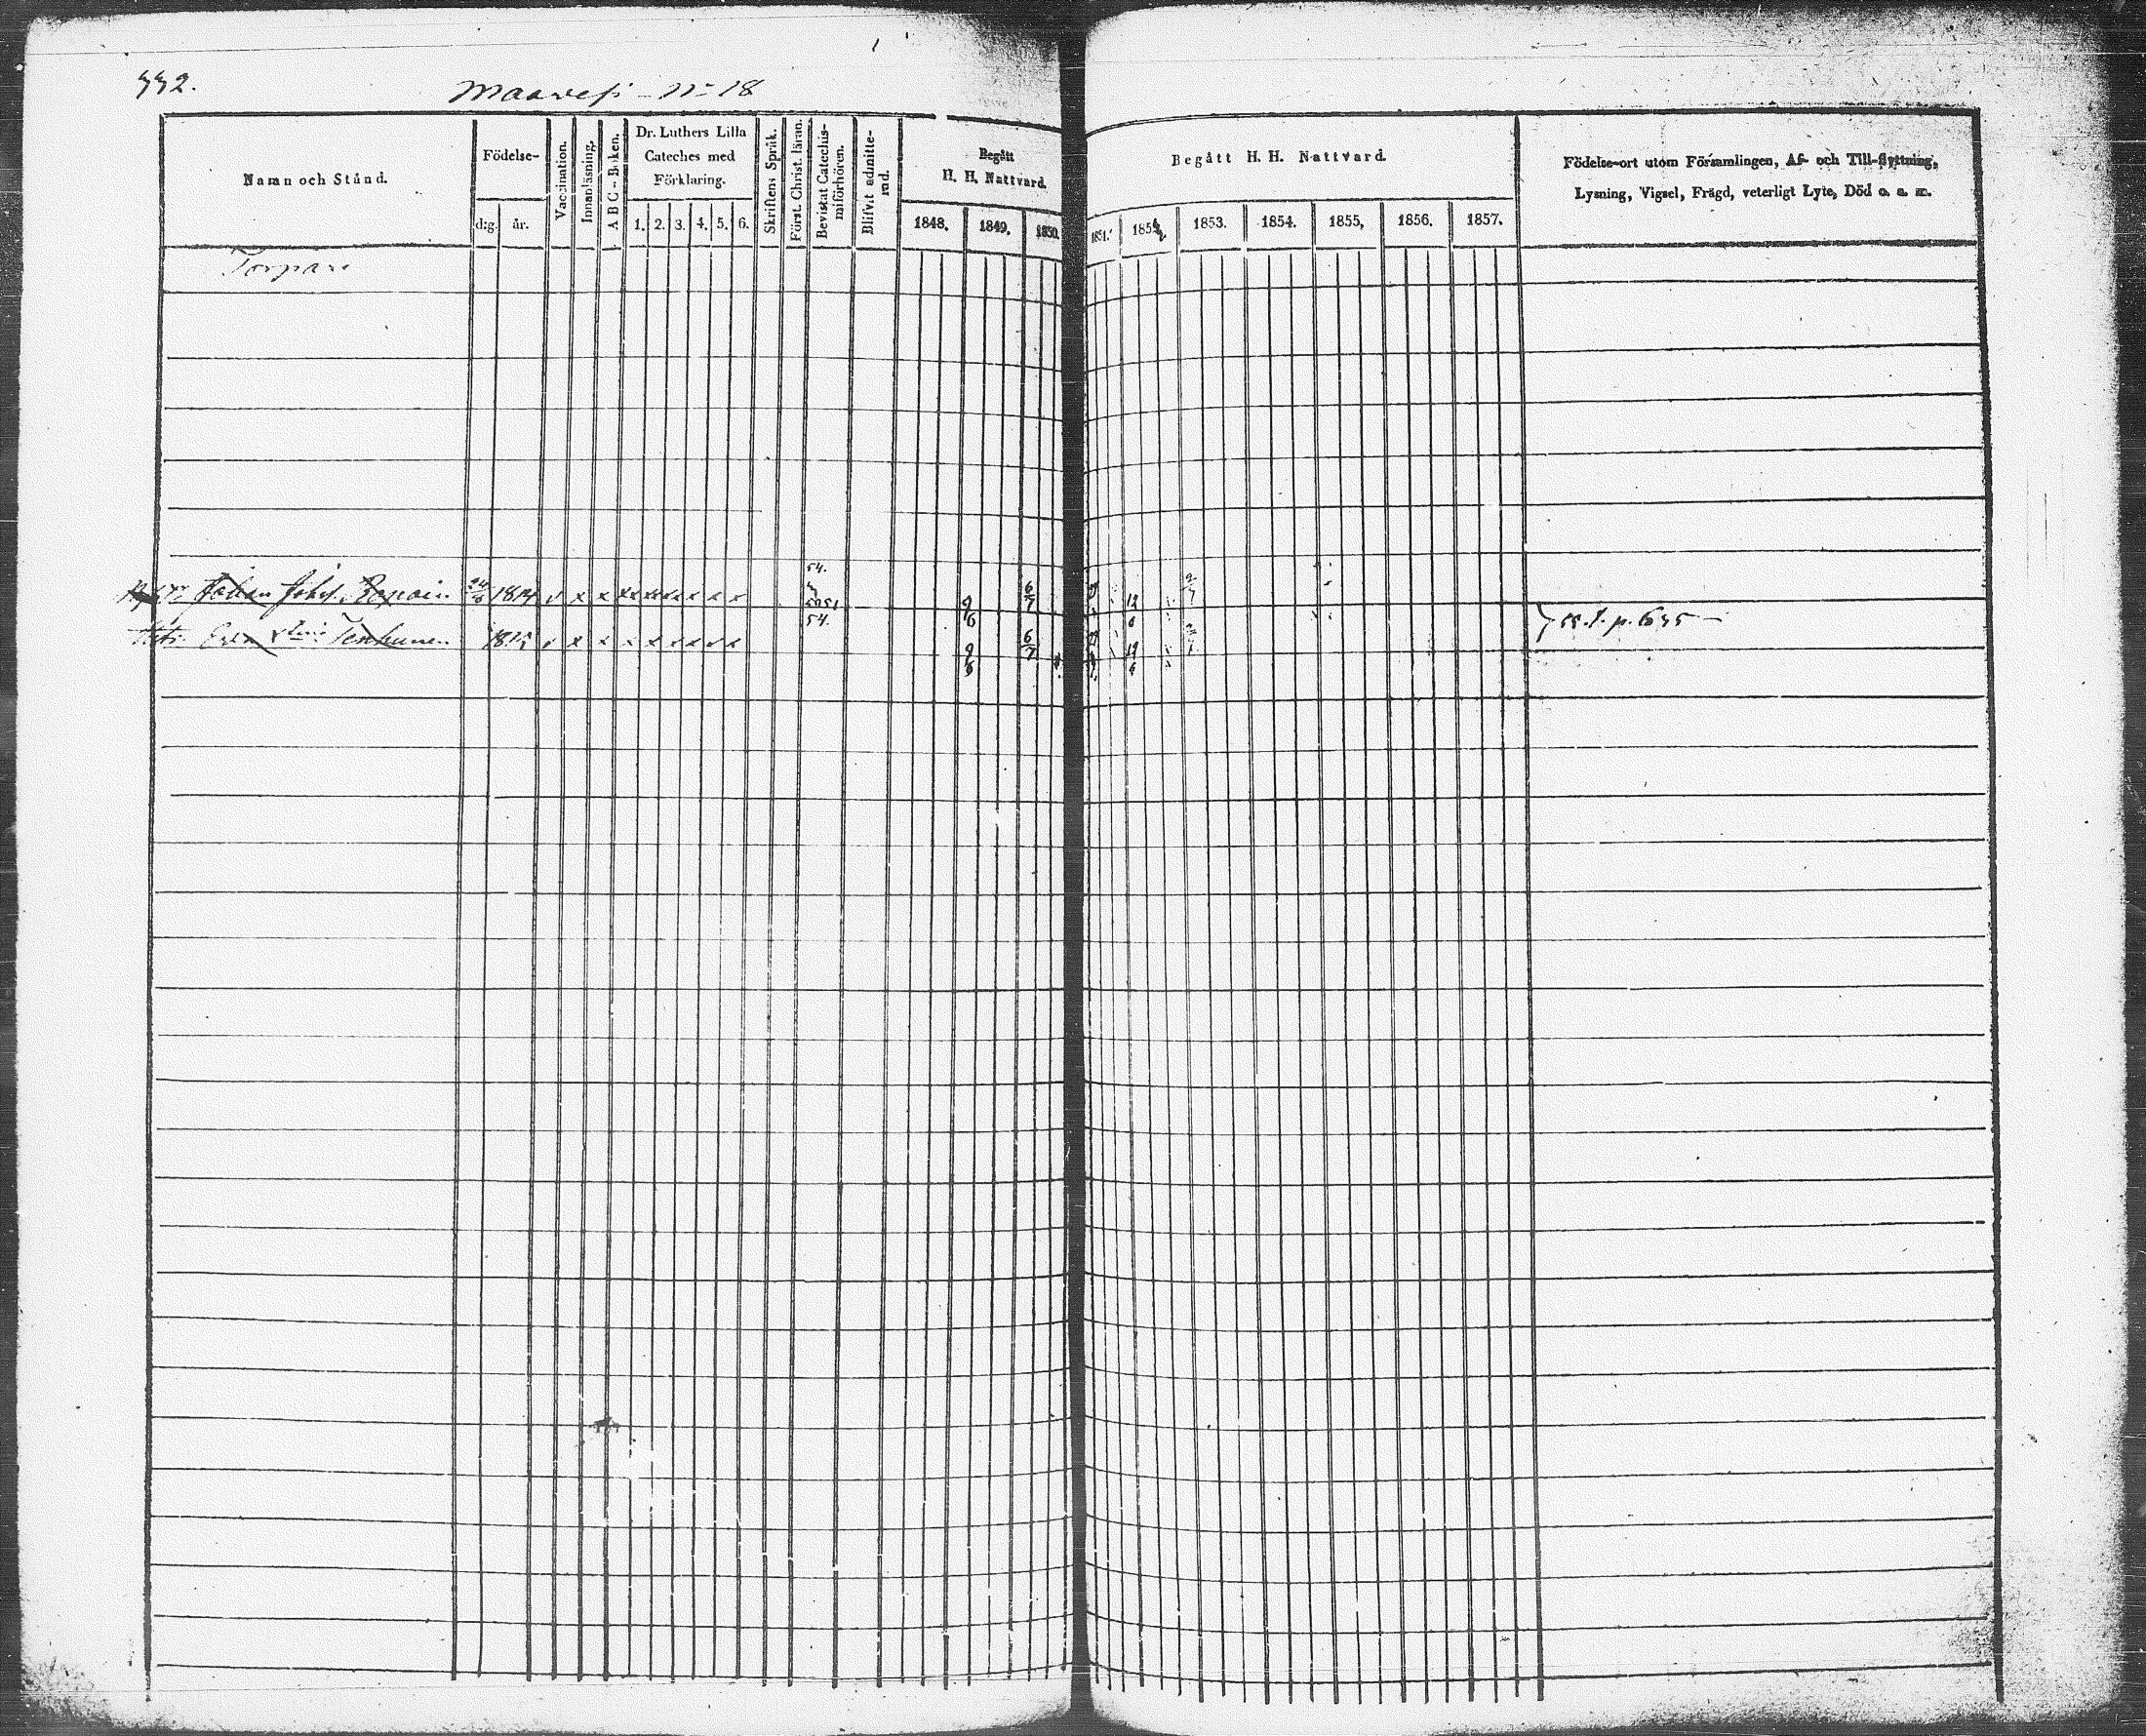 552.
Maavesi N:o 18
Namn och Stånd.
Födelse-
d:g. år.
Vaccination.
Innanläsning.
A B C - Boken.
Dr. Luthers Lilla
Cateches med
Förklaring.
1. 2. 3. 4. 5. 6.
Skriftens Språk.
Först. Christ. läran.
Bevistat Catechis-
miförhören.
Blifvit admitte-
rad.
Begått
H. H. Nattvard.
1848. 1849. 1850.
Begått H. H. Nattvard.
1851. 1852 1853. 1854. 1855, 1856. 1857.
Födelse-ort utom Församlingen, Af- och Till-flyttning,
Lysning, Vigsel, Frägd, veterligt Lyte, Död o. a. m.
Torpare
54.
Johan Johss. 18 x x x x x x x x 5051 9/6 6/7 12/6
54.
Eva Stina Tenhunen 1815 x x x x x x x x 9/6 6/7 12/6
55. f. p. 635